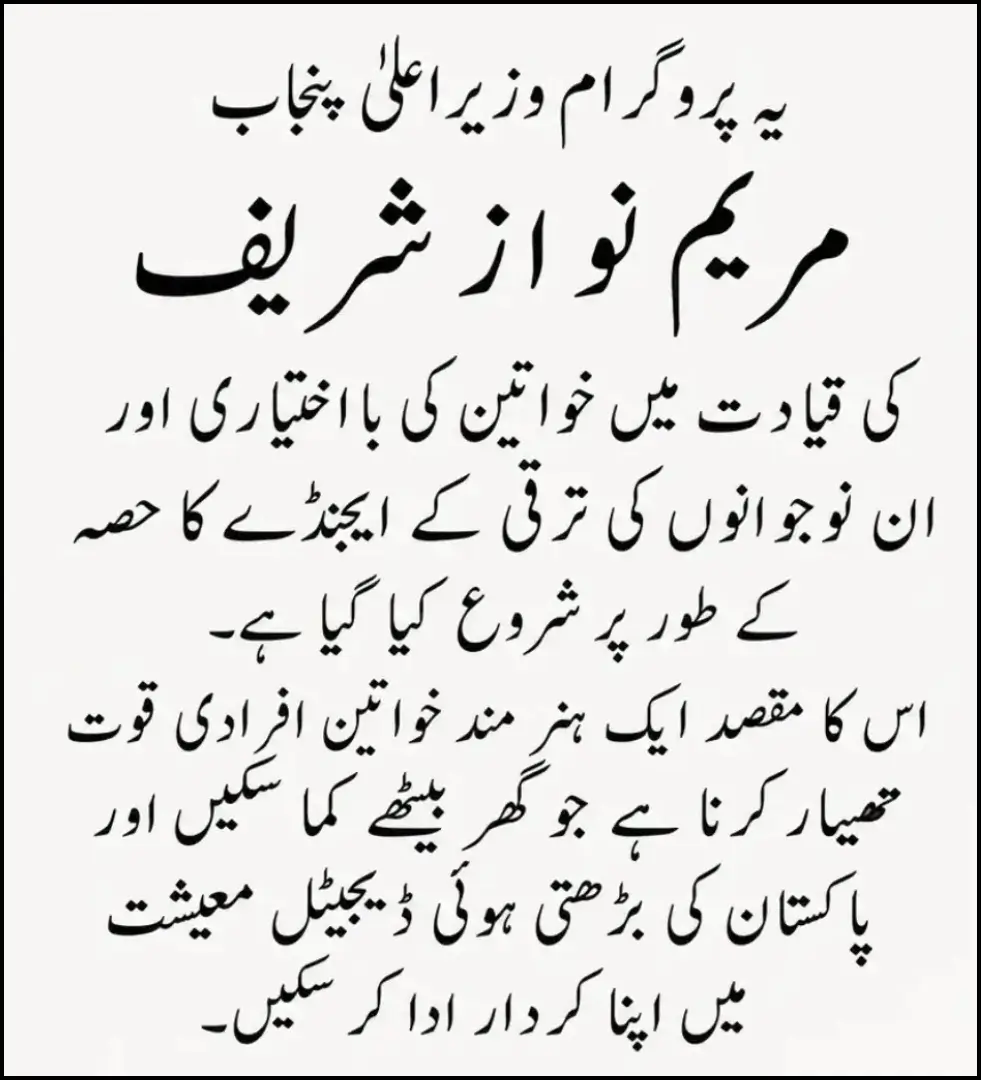 یہ پروگرام وزیراعلیٰ پنجاب
مریم نواز شریف
کی قیادت میں خواتین کی بااختیاری اور
ان نوجوانوں کی ترقی کے ایجنڈے کا حصہ
کے طور پر شروع کیا گیا ہے۔
اس کا مقصد ایک ہنر مند خواتین افرادی قوت
تھیار کرنا ہے جو گھر بیٹھے کما سکیں اور
پاکستان کی بڑھتی ہوئی ڈیجیٹل معیشت
میں اپنا کردار ادا کر سکیں۔